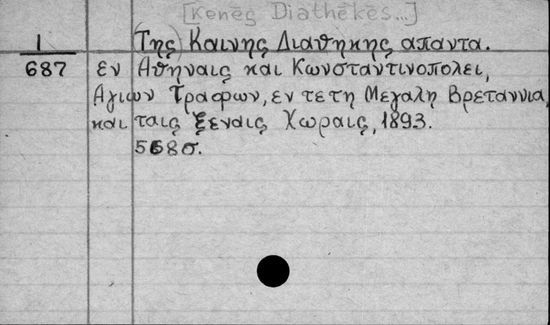 [Kenēs Diathēkēs...]
1 (Της) Καινης Διαθηκης απαντα.
687 εν Αθηναις και Κωνσταντινοπολει,
Αγιων Γραφων, εν τε τη Μεγαλη Βρεταννια,
και ταις ξεναις Χωραις, 1893.
568σ.